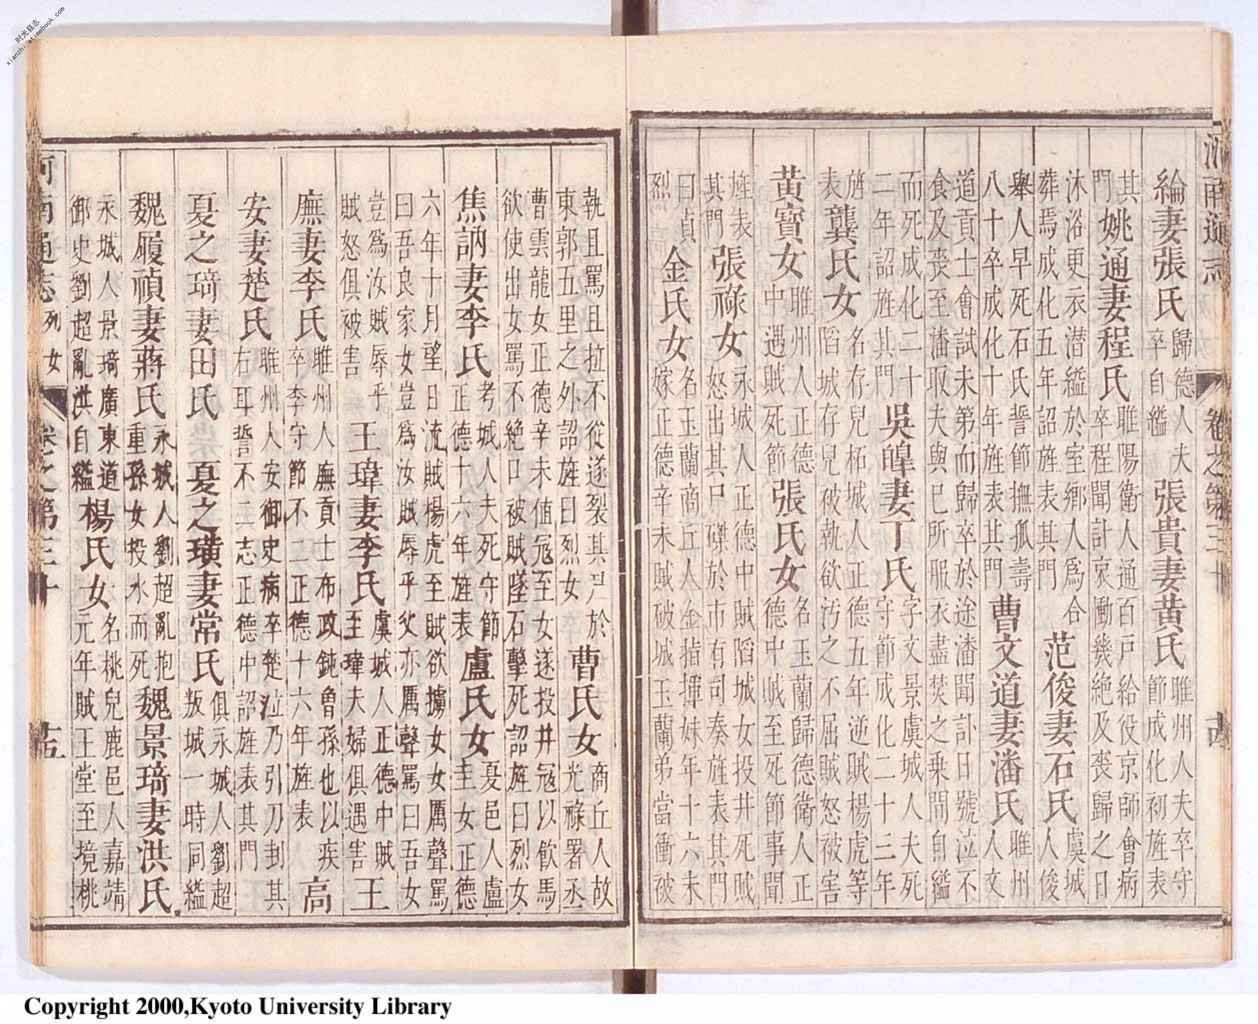 河南通志 卷之第三十 十四
綸妻張氏 歸德人夫卒自縊 張貴妻黄氏 睢州人夫卒守節成化初旌表
其門 姚通妻程氏 睢陽衛人通百戶給役京師會病卒程聞訃哀慟幾絶及喪歸之日
沐浴更衣潜縊於室鄉人爲合葬焉成化五年詔旌表其門 范俊妻石氏 虞城人俊
舉人早死石氏誓節撫孤壽八十卒成化十年旌表其門 曹文道妻潘氏 睢州人文
道貢士會試未第而歸卒於途潘聞訃日號泣不食及喪至潘取夫與已所服衣盡焚之乗間自縊
而死成化二十二年詔旌其門 吳皥妻丁氏 字文景虞城人夫死守節成化二十三年
旌表 龔氏女 名存兒柘城人正德五年逆賊楊虎等陷城存兒被執欲汚之不屈賊怒被害
黄寳女 睢州人正德中遇賊死節 張氏女 名玉蘭歸德衛人正德中賊至死節事聞
旌表其門 張祿女 永城人正德中賊陷城女投井死賊怒出其尸磔於市有司奏旌表其門
曰貞烈 金氏女 名玉蘭商丘人金指揮妹年十六未嫁正德辛未賊破城玉蘭弟當衝被
執且罵且拉不從遂裂其尸於東郭五里之外詔旌曰烈女 曹氏女 商丘人故光祿署丞
曹雲龍女正德辛未值寇至女遂投井寇以飲馬欲使出女罵不絶口被賊墜石擊死詔旌曰烈女
焦訥妻李氏 考城人夫死守節正德十六年旌表 盧氏女 夏邑人盧圭女正德
六年十月望日流賊楊虎至賊欲擄女女厲聲罵曰吾良家女豈爲汝賊辱乎父亦厲聲罵曰吾女
豈爲汝賊辱乎賊怒俱被害 王瑋妻李氏 虞城人正德中賊至瑋夫婦俱遇害 王
廡妻李氏 睢州人廡貢士布政鈍魯孫也以疾卒李守節不二正德十六年旌表 高
安妻楚氏 睢州人安御史病卒楚泣乃引刀刲其右耳誓不二志正德中詔旌表其門
夏之琦妻田氏 夏之璜妻常氏 俱永城人劉超叛城一時同縊
魏履禎妻蔣氏 永城人劉超亂抱重孫女投水而死 魏景琦妻洪氏
永城人景琦廣東道御史劉超亂洪自縊 楊氏女 名桃兒鹿邑人嘉靖元年賊王堂至境桃
河南通志 列女 卷之第三十 十五
时光县志
xianzhi.atimebook.com
Copyright 2000,Kyoto University Library